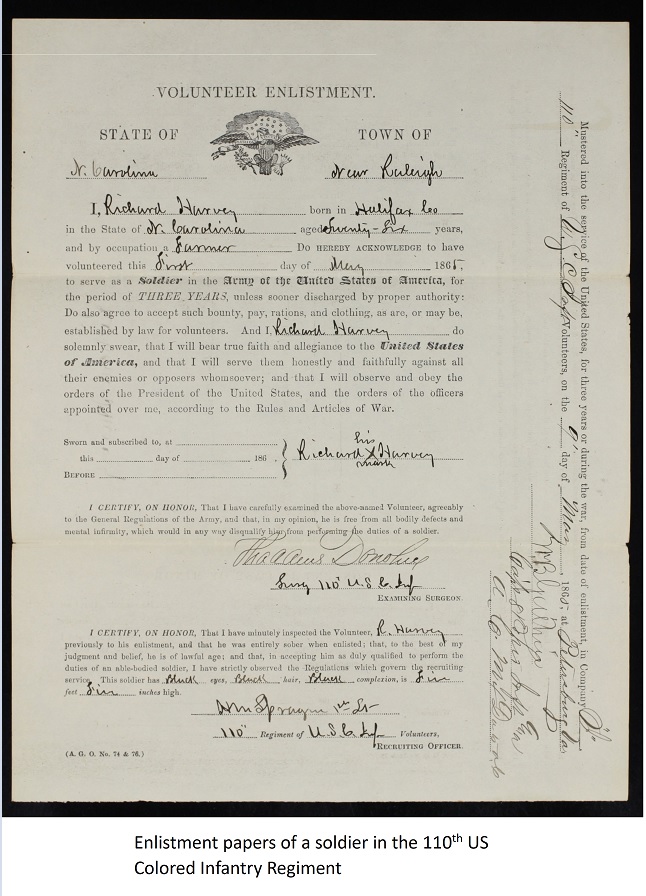 VOLUNTEER ENLISTMENT.
STATE OF
TOWN OF
N. Carolina
Near Raleigh
I, Richard Harvey born in Halifax Co
in the State of N. Carolina aged Twenty-Six years,
and by occupation a Farmer Do HEREBY ACKNOWLEDGE to have
volunteered this First day of May 1865,
to serve as a Soldier in the Army of the United States of America, for
the period of THREE YEARS, unless sooner discharged by proper authority:
Do also agree to accept such bounty, pay, rations, and clothing, as are, or may be,
established by law for volunteers. And I, Richard Harvey do
solemnly swear, that I will bear true faith and allegiance to the United States
of America, and that I will serve them honestly and faithfully against all
their enemies or opposers whomsoever; and that I will observe and obey the
orders of the President of the United States, and the orders of the officers
appointed over me, according to the Rules and Articles of War.
Sworn and subscribed to, at
this day of 186
BEFORE
his
Richard X Harvey
mark
I CERTIFY, ON HONOR, That I have carefully examined the above-named Volunteer, agreeably
to the General Regulations of the Army, and that, in my opinion, he is free from all bodily defects and
mental infirmity, which would in any way disqualify him from performing the duties of a soldier.
Donohue
Surg 110" U.S.C. Inf
EXAMINING SURGEON.
I CERTIFY, ON HONOR, That I have minutely inspected the Volunteer, R. Harvey
previously to his enlistment, and that he was entirely sober when enlisted; that, to the best of my
judgment and belief, he is of lawful age; and that, in accepting him as duly qualified to perform the
duties of an able-bodied soldier, I have strictly observed the Regulations which govern the recruiting
service. This soldier has Black eyes, Black hair, Black complexion, is Five
feet Five inches high.
Wm Sprague 1st Lt
110" Regiment of U.S.C. Inf Volunteers,
RECRUITING OFFICER.
(A. G. O. No. 74 & 76.)
Mustered into the service of the United States, for three years or during the war, from date of enlistment, in Company
110" Regiment of U.S.C. Inf Volunteers, on the day of May, 1865, at
Enlistment papers of a soldier in the 110th US
Colored Infantry Regiment